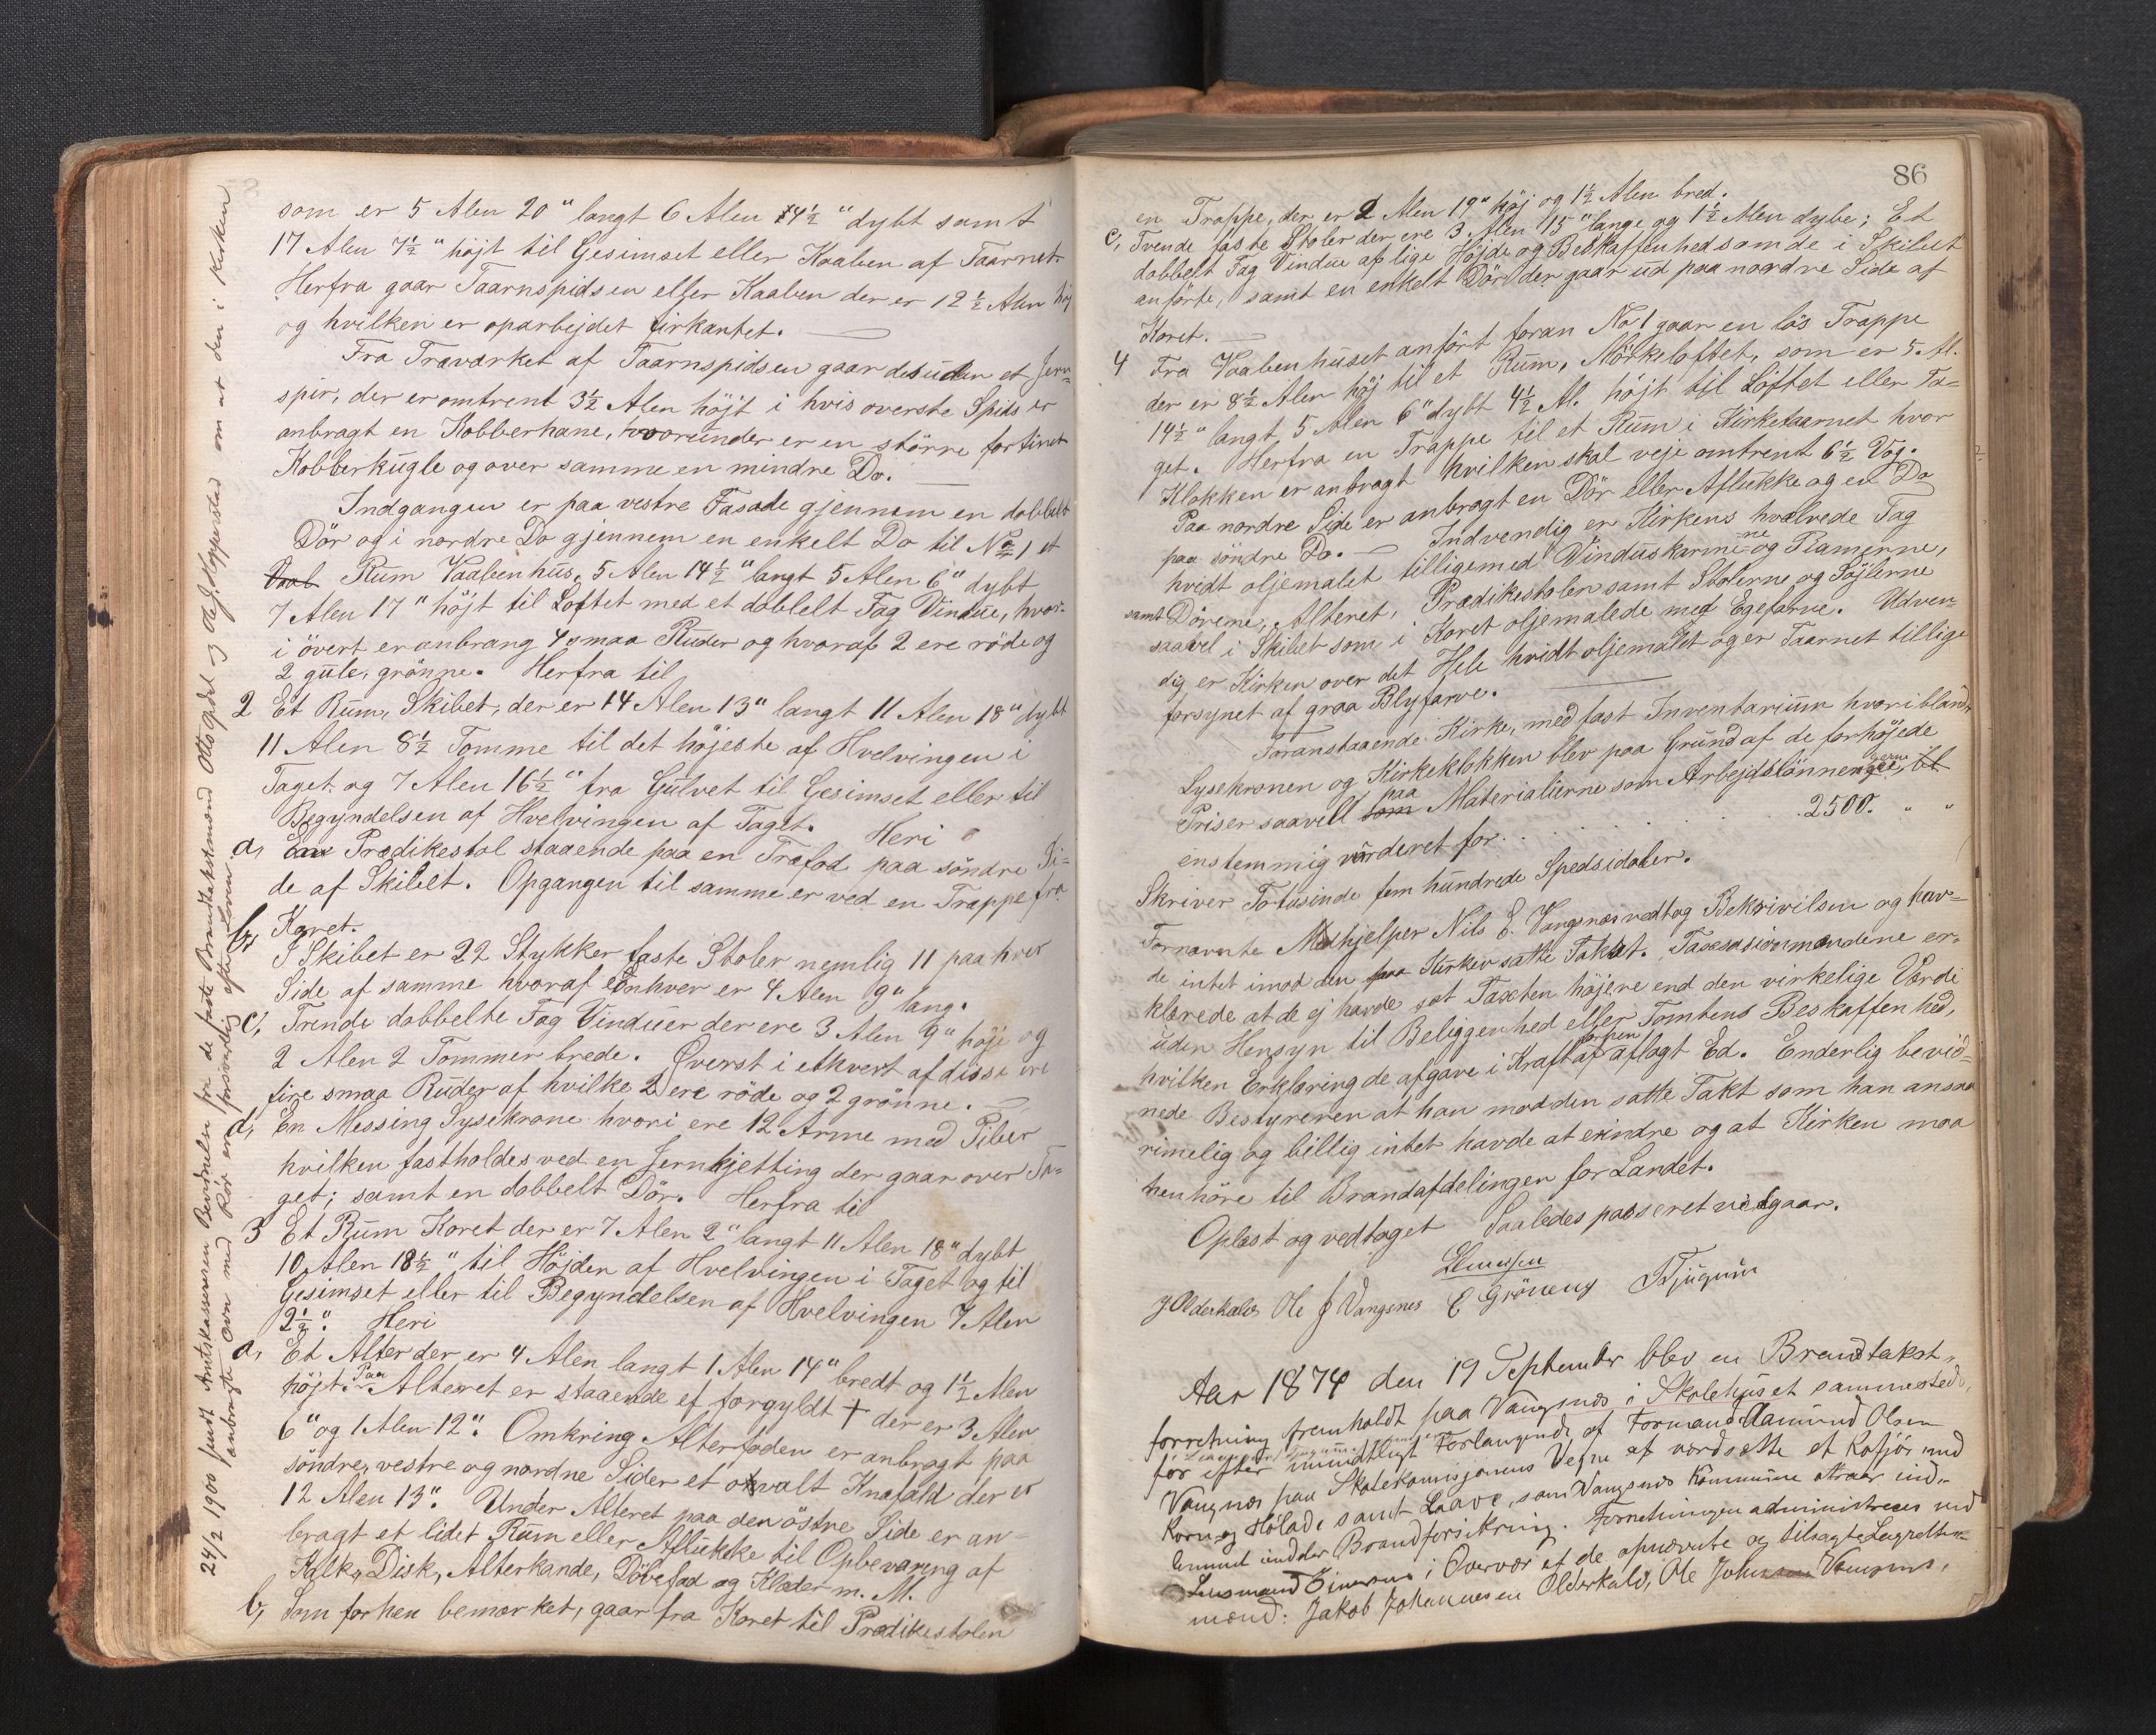 som er 5 Alen 20" langt 6 Alen 14½" dybt samt
17 Alen 7½" højt til Gesimset eller Kaaben af Taarnet.
Herfra gaar Taarnspidsen eller Kaaben der er 12½ Alen høj
og hvilken er oparbejdet firkantet. —
Fra Træværket af Taarnspidsen gaar desuden et Jern-
spir, der er omtrent 3½ Alen højt i hvis øverste Spids er
anbragt en Kobberhane, hvorunder er en større fortinet
Kobberkugle og over samme en mindre Do. —
Indgangen er paa vestre Fasade gjennem en dobbelt
Dör og i nordre Do gjennem en enkelt Do til No 1 et
Vaab Rum Vaabenhus, 5 Alen 14½" langt 5 Alen 6" dybt
7 Alen 17" højt til Loftet med et dobbelt Fag Vindue, hvor-
i övert er anbrang 4 smaa Ruder og hvoraf 2 ere röde og
2 gule, grönne. Herfra til
2 Et Rum, Skibet, der er 14 Alen 13" langt 11 Alen 18" dybt
11 Alen 8½ Tomme til det höjeste af Hvelvingen i
Taget og 7 Alen 16½" fra Gulvet til Gesimset eller til
Begyndelsen af Hvelvingen af Taget. Heri
a, En Prædikestol staaende paa en Træfod paa söndre Si-
de af Skibet. Opgangen til samme er ved en Trappe fra
Koret.
b, I Skibet er 22 Stykker faste Stoler nemlig 11 paa hver
Side af samme hvoraf enhver er 4 Alen 9" lang.
c, Trende dobbelte Fag Vinduer der ere 3 Alen 9" höje og
2 Alen 2 Tommer brede. Överst i ethvert af disse ere
fire smaa Ruder af hvilke 2 ere röde og 2 grönne. —
d, En Messing Lysekrone hvori ere 12 Arme med Piber
hvilken fastholdes ved en Jernkjetting der gaar over Ta-
get; samt en dobbelt Dör. Herfra til
3 Et Rum Koret der er 7 Alen 2" langt 11 Alen 18" dybt
10 Alen 18½" til Höjden af Hvelvingen i Taget og til
Gesimset eller til Begyndelsen af Hvelvingen 7 Alen
2½". Heri
a, Et Alter der er 4 Alen langt 1 Alen 14" bredt og 1½ Alen
höjt. Paa Alteret er staaende et forgyldt + der er 3 Alen
6" og 1 Alen 12". Omkring Alterfoden er anbragt paa
söndre, vestre og nordne Sider et ovalt Knæfald der er
12 Alen 13". Under Alteret paa den östre Side er an-
bragt et lidet Rum eller Aflukke til Opbevaring af
Kalk, Disk, Alterkande, Döbefad og Klæder m. M.
b, Som forhen bemærket, gaar fra Koret til Prædikestolen
24/2 1900 sendt Amtskasseren Bevidnelse fra de faste Brandtakstmænd Otto Opdal og Ole J. Hopperstad om at den i Kirken
anbragte Ovn med Rör er forsvarlig efter Loven.
86
en Trappe, der er 2 Alen 19" höj og 1½ Alen bred.
c, Tvende faste Stoler der ere 3 Alen 15" lange og 1½ Alen dybe; Et
dobbelt Fag Vindue af lige Höjde og Beskaffenhed som de i Skibet
anförte, samt en enkelt Dör der gaar ud paa nordre Side af
Koret. —
4 Fra Vaabenhuset anfört foran No 1 gaar en lös Trappe
der er 8½ Alen höj til et Rum, Mörkeloftet, som er 5 Al.
14½" langt 5 Alen 6" dybt 4½ Al. höjt til Loftet eller Ta-
get. Herfra en Trappe til et Rum i Kirketaarnet hvor
Klokken er anbragt hvilken skal veje omtrent 6½ Vog.
Paa nordre Side er anbragt en Dör eller Aflukke og en Do
paa söndre Do. — Indvendig er Kirkens hvælvede Tag
hvidt oljemalet tilligemed Vinduskarmene og Ramerne,
samt Dörene, Alteret, Prædikestolen samt Stolerne og Söjlerne
saavel i Skibet som i Koret oljemalede med Egefarve. Udven-
dig er Kirken over det Hele hvidt oljemalet og er Taarnet tillige
forsynet af graa Blyfarve.
Foranstaaende Kirke, med fast Inventarium hvoriblandt
Lysekronen og Kirkeklokken blev paa Grund af de forhöjede
Priser saavel som paa Materialierne som Arbejdslönningerne, bl
enstemmig vurderet for . . . . . . . 2500. " "
Skriver Totusinde fem hundrede Spedsidaler.
Fornævnte Medhjelper Nils E. Vangsnæs vedtog Bekrivilsen og hav-
de intet imod den paa Kirken satte Takst. Taxasionsmændene er-
klærede at de ej havde sat Taxten höjere end den virkelige Værdi
uden Hensyn til Beliggenhed eller Tomtens Beskaffenhed,
hvilken Erklæring de afgave i Kraft af forhen aflagt Ed. Enderlig bevid-
nede Bestyreren at han mod den satte Takt som han ansaa
rimelig og billig intet havde at erindre og at Kirken maa
henhöre til Brandafdelingen for Landet.
Oplæst og vedtaget Saaledes passeret vidgaar.
J Olderkals Ole J Vangsnes E Gröneng T Njugum
Aar 1874 den 19 September blev en Brandtakst-
forretning fremholdt paa Vangsnæs i Skolehuset sammesteds,
för efter mundtligt Forlangende af Formand Aamund Olsen
Vangnæs paa Skolekomisjonens Vegne at værdsætte et Kofjös med
Korn og Hölade samt Laave, som Vangsnæs Kommune attraar ind-
lemmet under Brandforsikring. Forretningen administreres ved
Lensmand i Overvær af de opnævnte og tilsagte Lagrettes-
mænd: Jakob Johannesen Olderkald, Ole Johnson Vangsnes,